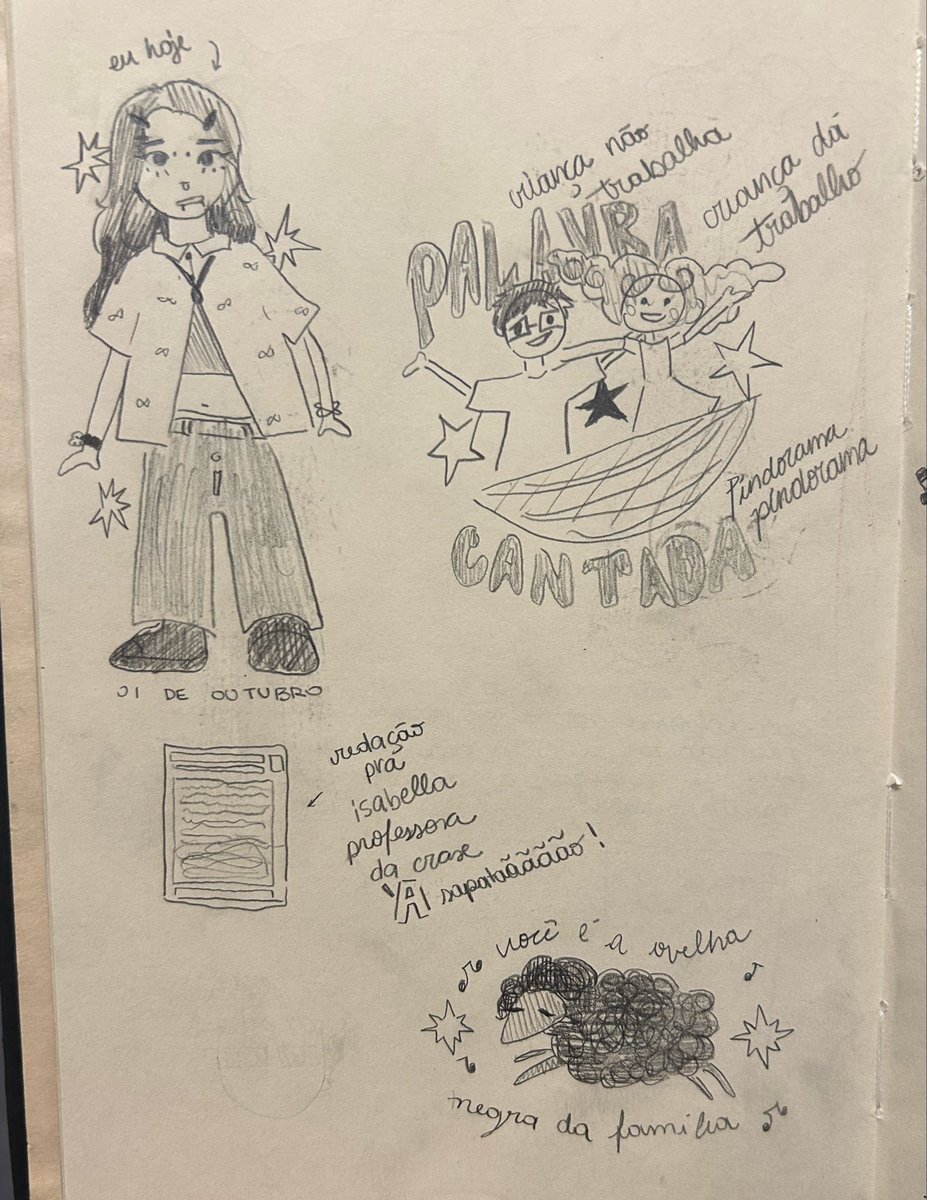 eu hoje
01 DE OUTUBRO
criança não
trabalha
criança dá
trabalho
PALAVRA
CANTADA
Pindorama
pindorama
redação
pra
isabella
professora
da crase
À sapatããããão!
você é a ovelha
negra da família